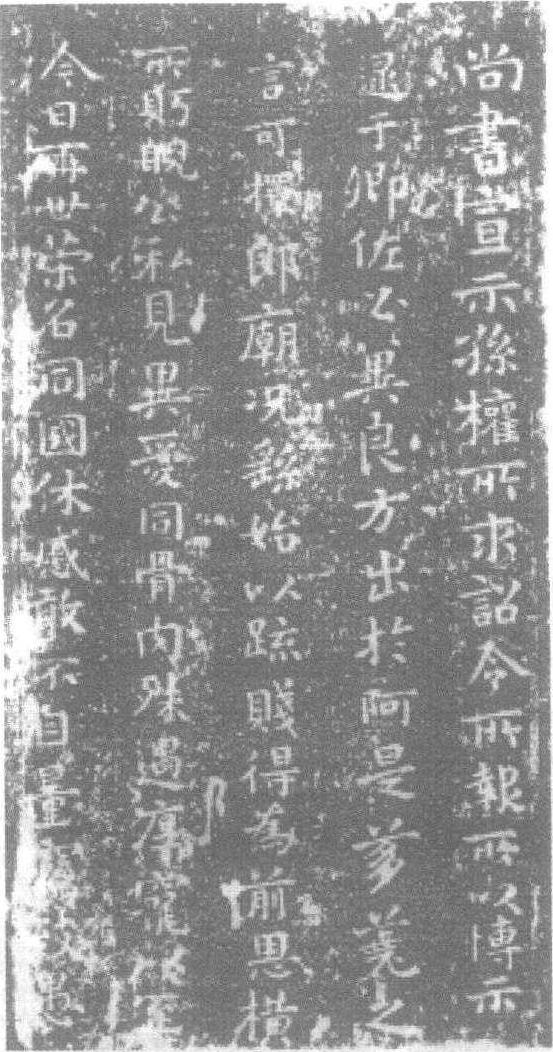 尚書宣示孫權所求詔令所報所以博示
逮于卿佐必異良方出於阿是芻蕘之
言可擇郎廟況繇始以疏賤得為前恩橫
所眄睨公私見異愛同骨肉殊遇厚寵以至
今日再世榮名同國休慼敢不自量竊致愚